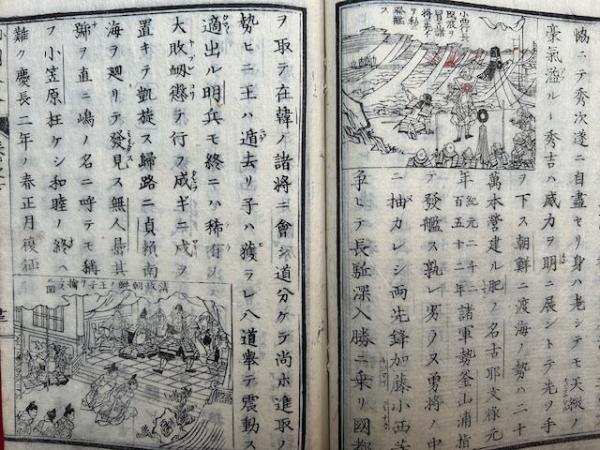 ニテ秀次遂ニ自盡セリ身ハ老シテモ天縦ノ
豪氣溢ルヽ秀吉ハ威力ヲ明ニ展ントテ先ヅ手
ヲ下ス朝鮮ニ渡海ノ勢ハ二十
萬本營建ル肥ノ名古耶文禄元
年紀元二千二百五十二年諸軍勢釜山浦指
テ發艦ス孰レ劣ラヌ勇將ノ中
ニ抽カレシ両先鋒加藤小西等
争レテ長驅深入勝ニ乗リ國都
ヲ取テ在韓ノ諸將ニ會シ道分ケテ尚ホ進取ノ
勢ヒニ王ハ遁去リ子ハ獲ラレ八道擧テ震動ス
適出ル明兵モ終ニハ稀有ノ
大敗衂懲テ行フ成ギニ戍ヲ
置キテ凱旋ス歸路ニ貞頼南
海ヲ廻リテ發見ス無人島其
號ヲ直ニ嶋ノ名ニ呼テモ稱
フ小笠原枉ケシ和睦ノ終ヘ
難ク慶長二年ノ春正月復征
清正朝鮮ノ王子ヲ擒